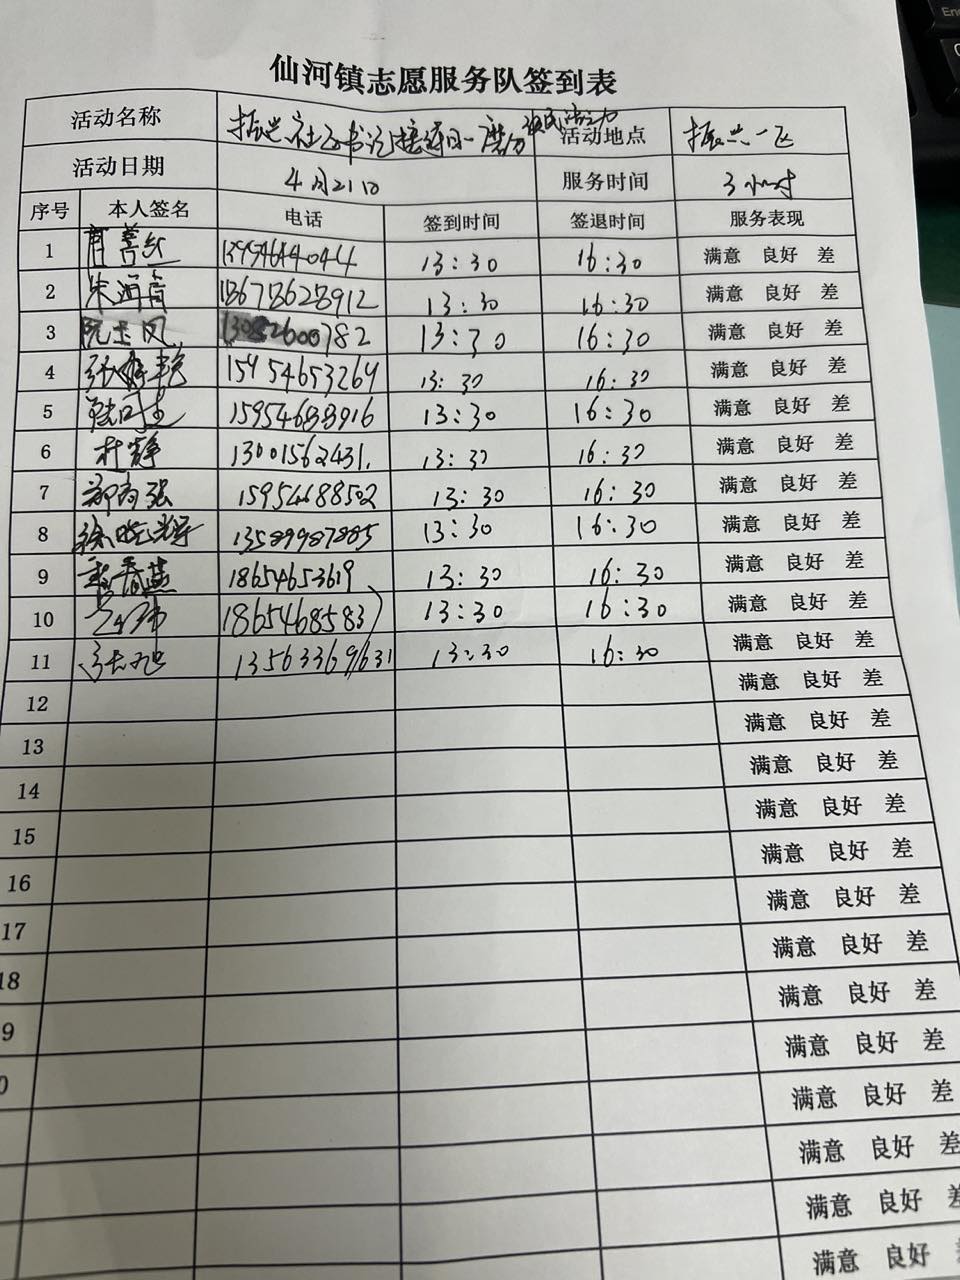 仙河镇志愿服务队签到表
活动名称 振兴社区书记接待日一磨刀 便民活动 活动地点 振兴一区
活动日期 4月21日 服务时间 3小时
序号 本人签名 电话 签到时间 签退时间 服务表现
1 13:30 16:30 满意 良好 差
2 朱海青 18678628912 13:30 16:30 满意 良好 差
3 阮玉凤 13082600782 13:30 16:30 满意 良好 差
4 15954653264 13:30 16:30 满意 良好 差
5 15954688916 13:30 16:30 满意 良好 差
6 杜静 13001562431. 13:30 16:30 满意 良好 差
7 15954688502 13:30 16:30 满意 良好 差
8 徐晓辉 13589987885 13:30 16:30 满意 良好 差
9 李春燕 18654653619 13:30 16:30 满意 良好 差
10 18654685837 13:30 16:30 满意 良好 差
11 13563369631 13:30 16:30 满意 良好 差
12 满意 良好 差
13 满意 良好 差
14 满意 良好 差
15 满意 良好 差
16 满意 良好 差
17 满意 良好 差
18 满意 良好 差
9 满意 良好 差
0 满意 良好 差
满意 良好 差
满意 良好 差
满意 良好 差
满意 良好 差